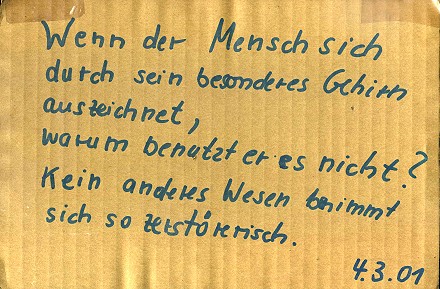 Wenn der Mensch sich
durch sein besonderes Gehirn
auszeichnet,
warum benutzt er es nicht?
Kein anderes Wesen benimmt
sich so zerstörerisch.
4.3.01